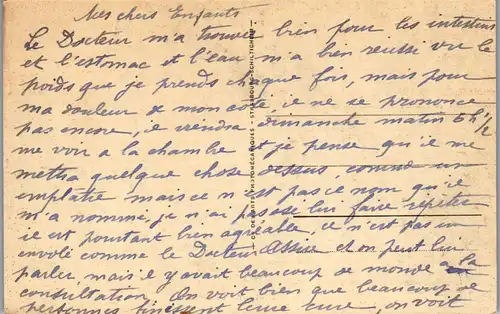 Mes chers Enfants
Le Docteur m'a trouvé bien pour les intestins
et l'estomac et l'eau m'a bien reussi vu le
poids que je prends chaque fois, mais pour
ma douleur de mon coté, il ne se prononce
pas encore, il viendra dimanche matin 6h 1/2
me voir a la chambre et je pense qu'il me
mettra quelque chose dessus, comme un
emplatre mais ce n'est pas le nom qu'il
m'a nommé, je n'ai pas osé lui faire repeter
il est pourtant bien agréable, ce n'est pas un
envolé comme le Docteur et on peut lui
parler, mais il y avait beaucoup de monde a la
consultation, On voit bien que beaucoup de
personnes finissent leur cure, on voit